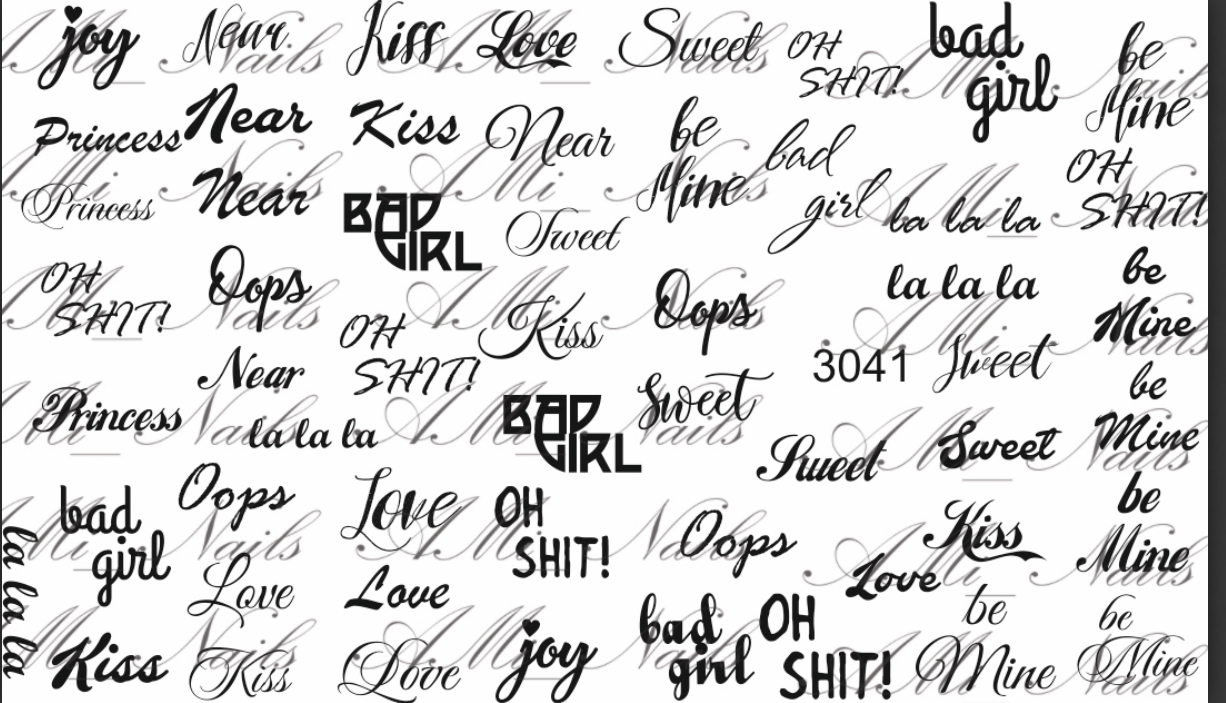 joy
Near
Kiss
Love
Sweet
OH
SHIT!
bad
girl
be
Mine
Princess
Near
Kiss
Near
be
Mine
bad
girl
OH
SHIT!
Princess
Near
BAD
GIRL
Sweet
la la la
OH
SHIT!
Oops
OH
SHIT!
Kiss
Oops
la la la
be
Mine
3041
Sweet
Near
Princess
la la la
BAD
GIRL
Sweet
Sweet
Sweet
be
Mine
bad
girl
Oops
Love
OH
SHIT!
Oops
Kiss
be
Mine
la la la
Love
Love
Love
be
Mine
be
Mine
Kiss
Kiss
Love
joy
bad
girl
OH
SHIT!
A Mi Nails